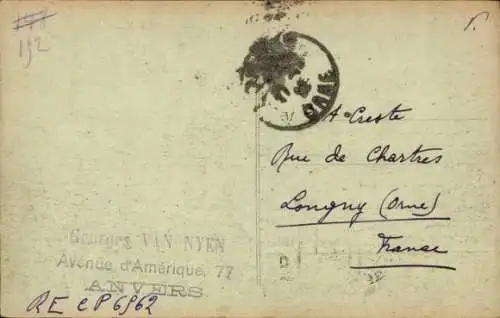 152
A. Creste
Rue de Chartres
Longny (Orne)
France
Georges VAN NYEN
Avenue d'Amérique, 77
ANVERS
RE CP 6962